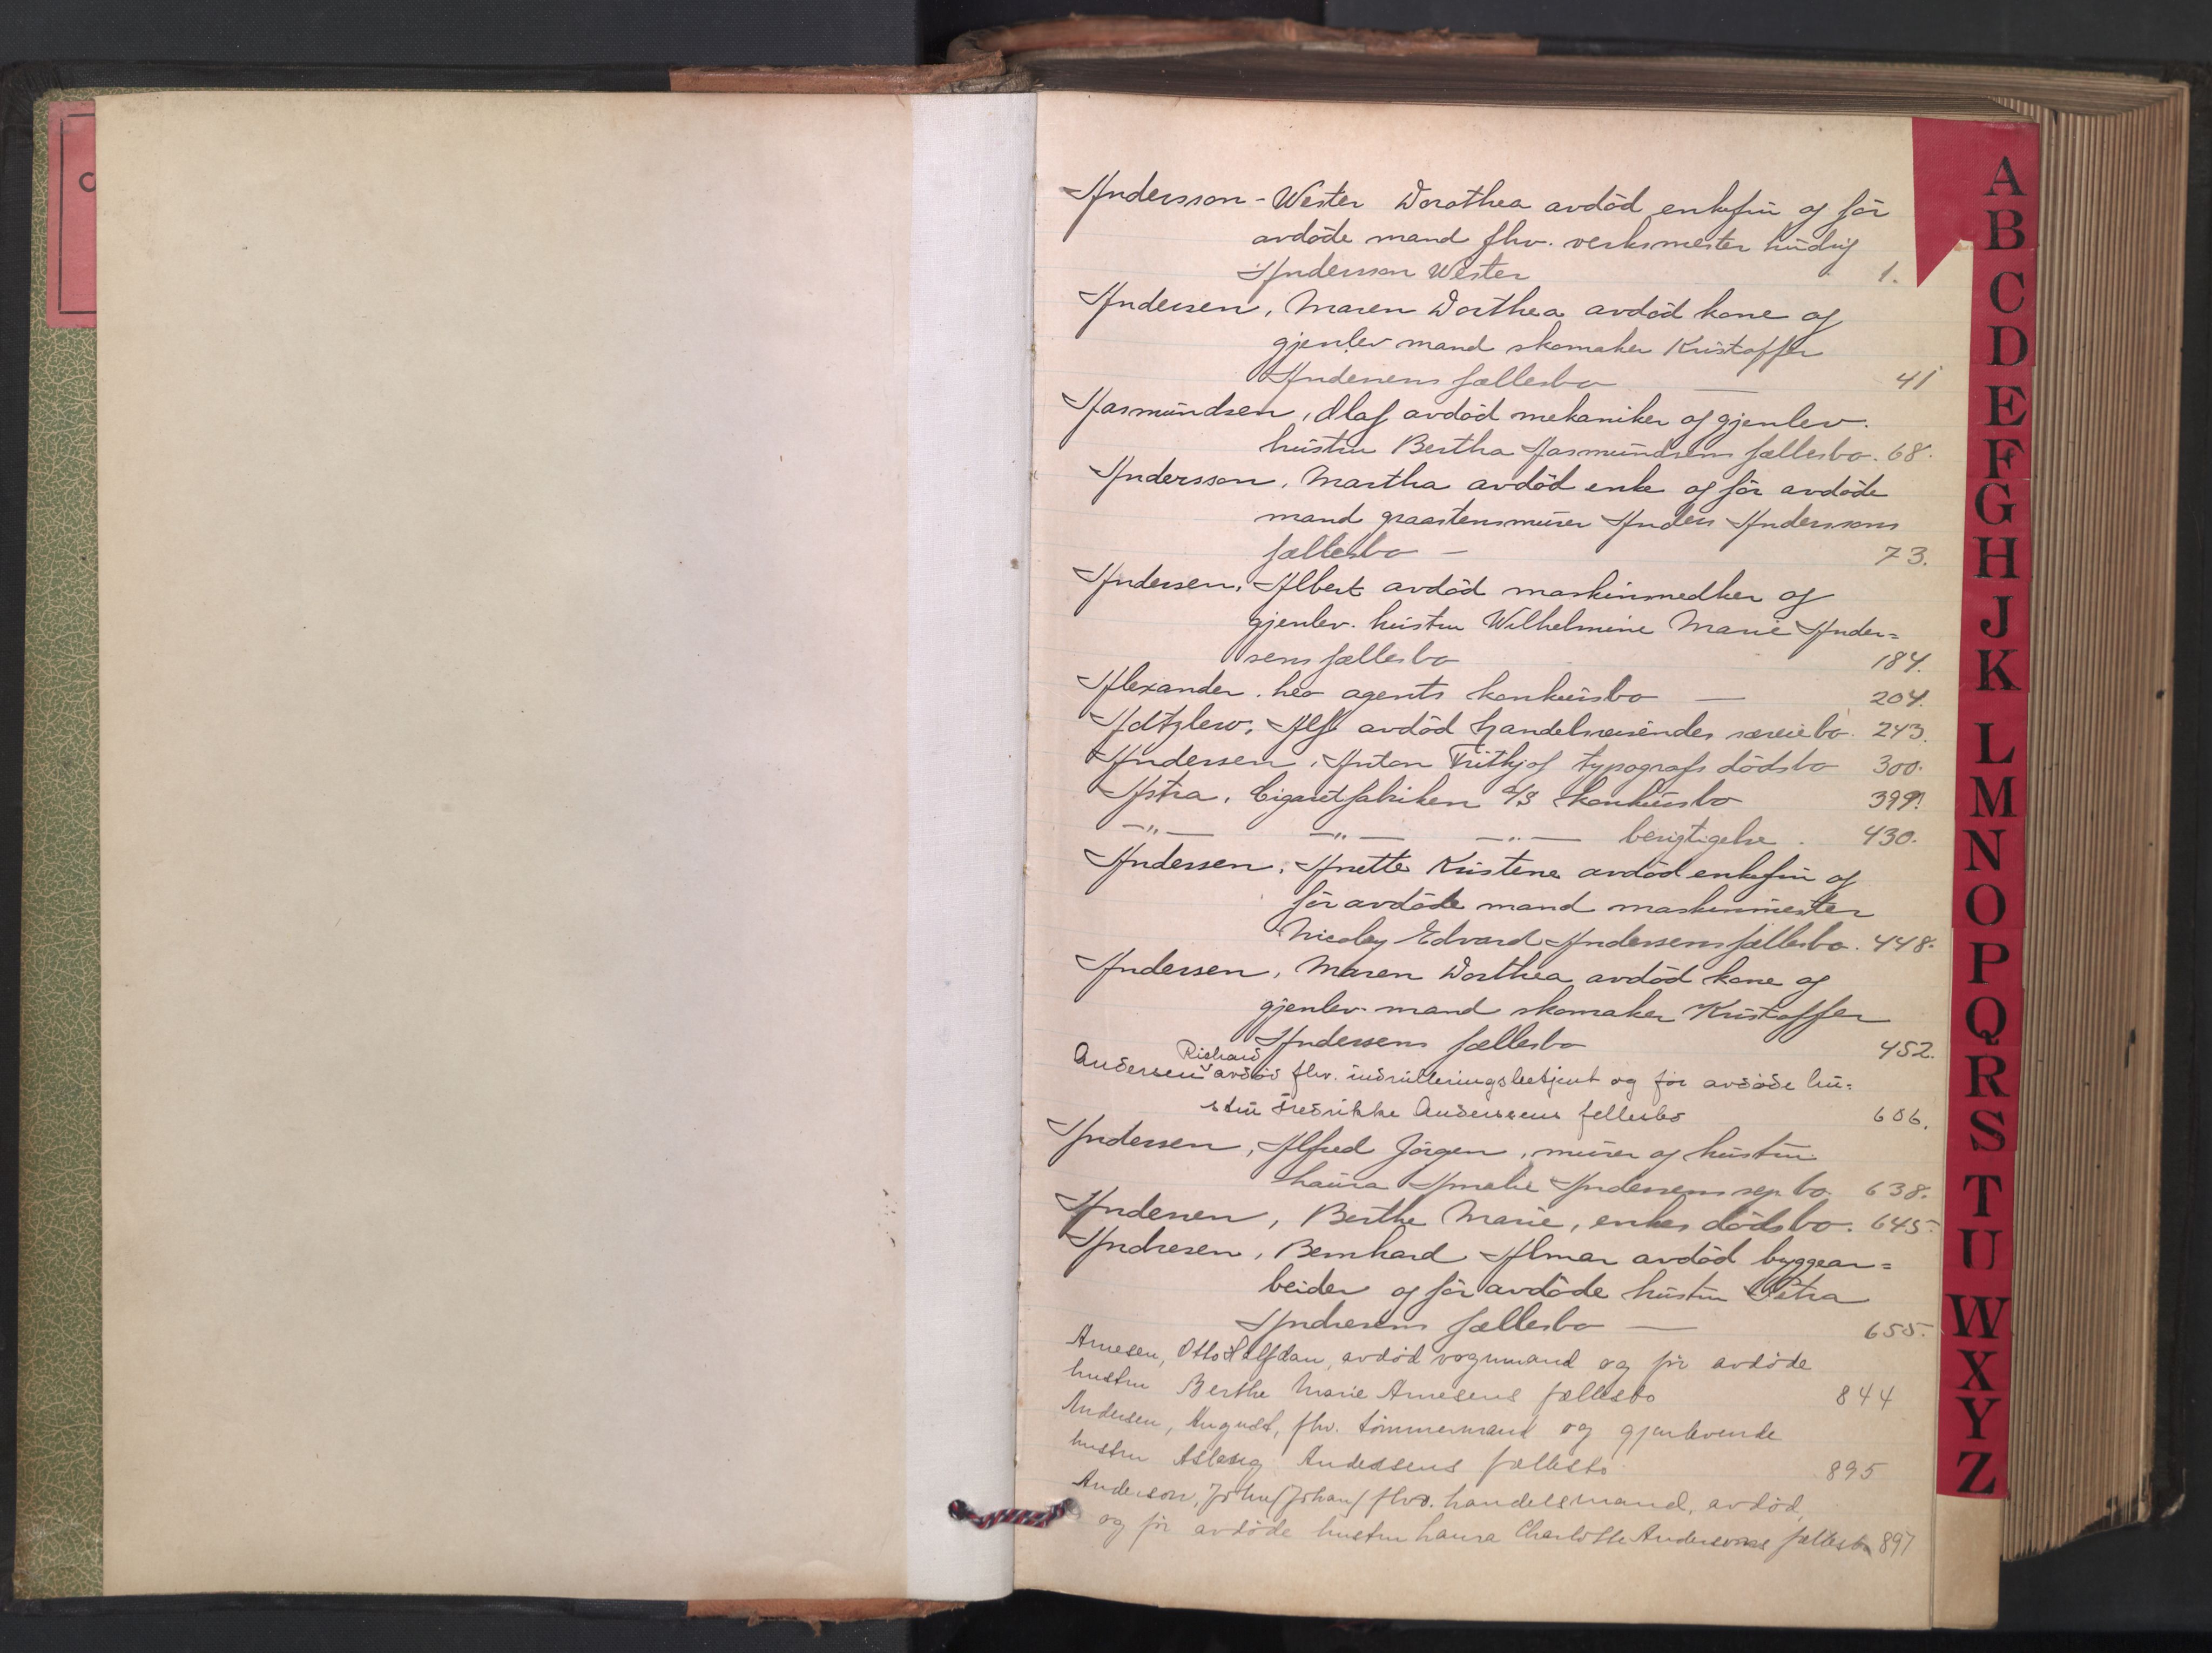 Andersson-Wester Dorothea avdöd enkefru og før
avdöde mand fhv. verksmester Ludvig
Andersson Wester 1.
Andersen, Maren Dorthea avdöd kone og
gjenlev mand skomaker Kristoffer
Andersens fællesbo — 41
Aasmundsen, Olaf avdöd mekaniker og gjenlev.
hustru Bertha Aasmundsens fællesbo. 68.
Andersson, Martha avdöd enke og før avdöde
mand graastensmurer Anders Anderssons
fællesbo — 73.
Andersen, Albert avdöd maskinsmedker og
gjenlev. hustru Wilhelmine Marie Ander=
sens fællesbo 184.
Alexander. Leo agents konkursbo — 204.
Adtzlew, Alf avdöd handelsreisendes særeiebo. 243.
Andersen, Anton Fritjof typografs dödsbo 300.
Astra, Cigaretfabriken A/S konkursbo 399.
—"— —"— —"— berigtigelse. 430.
Andersen, Anette Kristene avdöd enkefru og
før avdöde mand maskinmester
Nicolay Edvard Andersens fællesbo. 448.
Andersen, Maren Dorthea avdöd kone og
gjenlev. mand skomaker Kristoffer
Andersens fællesbo 452.
Richard
Andersen avdöd fhv. indrulleringsbetjent og før avdöde hu=
stru Fredrikke Anderssens fellesbo 606.
Andersen, Alfred Jörgen, murer og hustru
Laura Amalie Andersens sep. bo. 638.
Andersen, Berthe Marie, enkes dödsbo. 645.
Andresen, Bernhard Almar avdöd byggear=
beider og før avdöde hustru Petra
Andresens fællesbo — 655.
Arnesen, Otto Halfdan, avdöd vognmand og før avdöde
hustru Berthe Marie Arnesens fællesbo 844
Andersen, August, fhv. tömmermand og gjenlevende
hustru Aslaug Andersens fællesbo 895
Anderson, John/Johan/ fhv. handelsmand, avdöd,
og før avdöde hustru Laura Charlotte Andersons fællesbo 897
A
B
C
D
E
F
G
H
J
K
L
M
N
O
P
Q
R
S
T
U
W
X
Y
Z